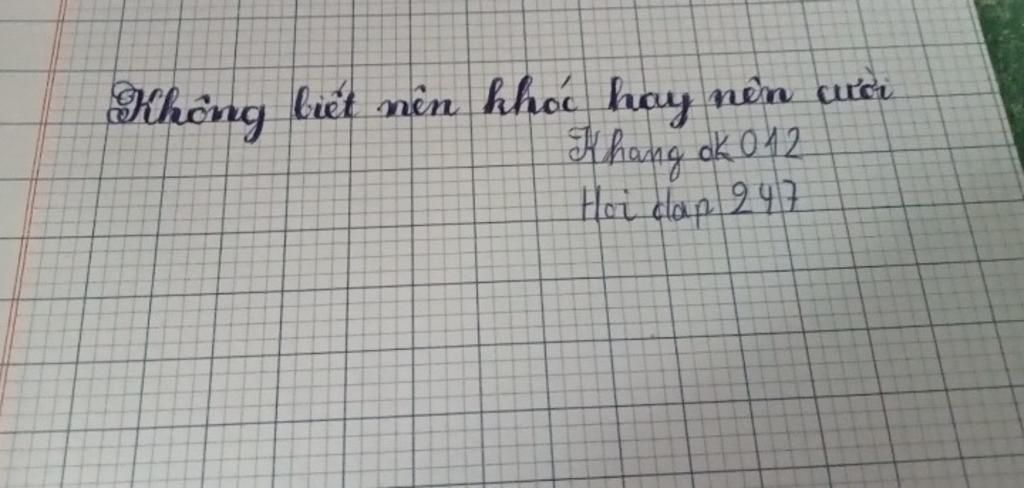 Không biết nên khóc hay nên cười
Khang ok 012
Hoi dap 247